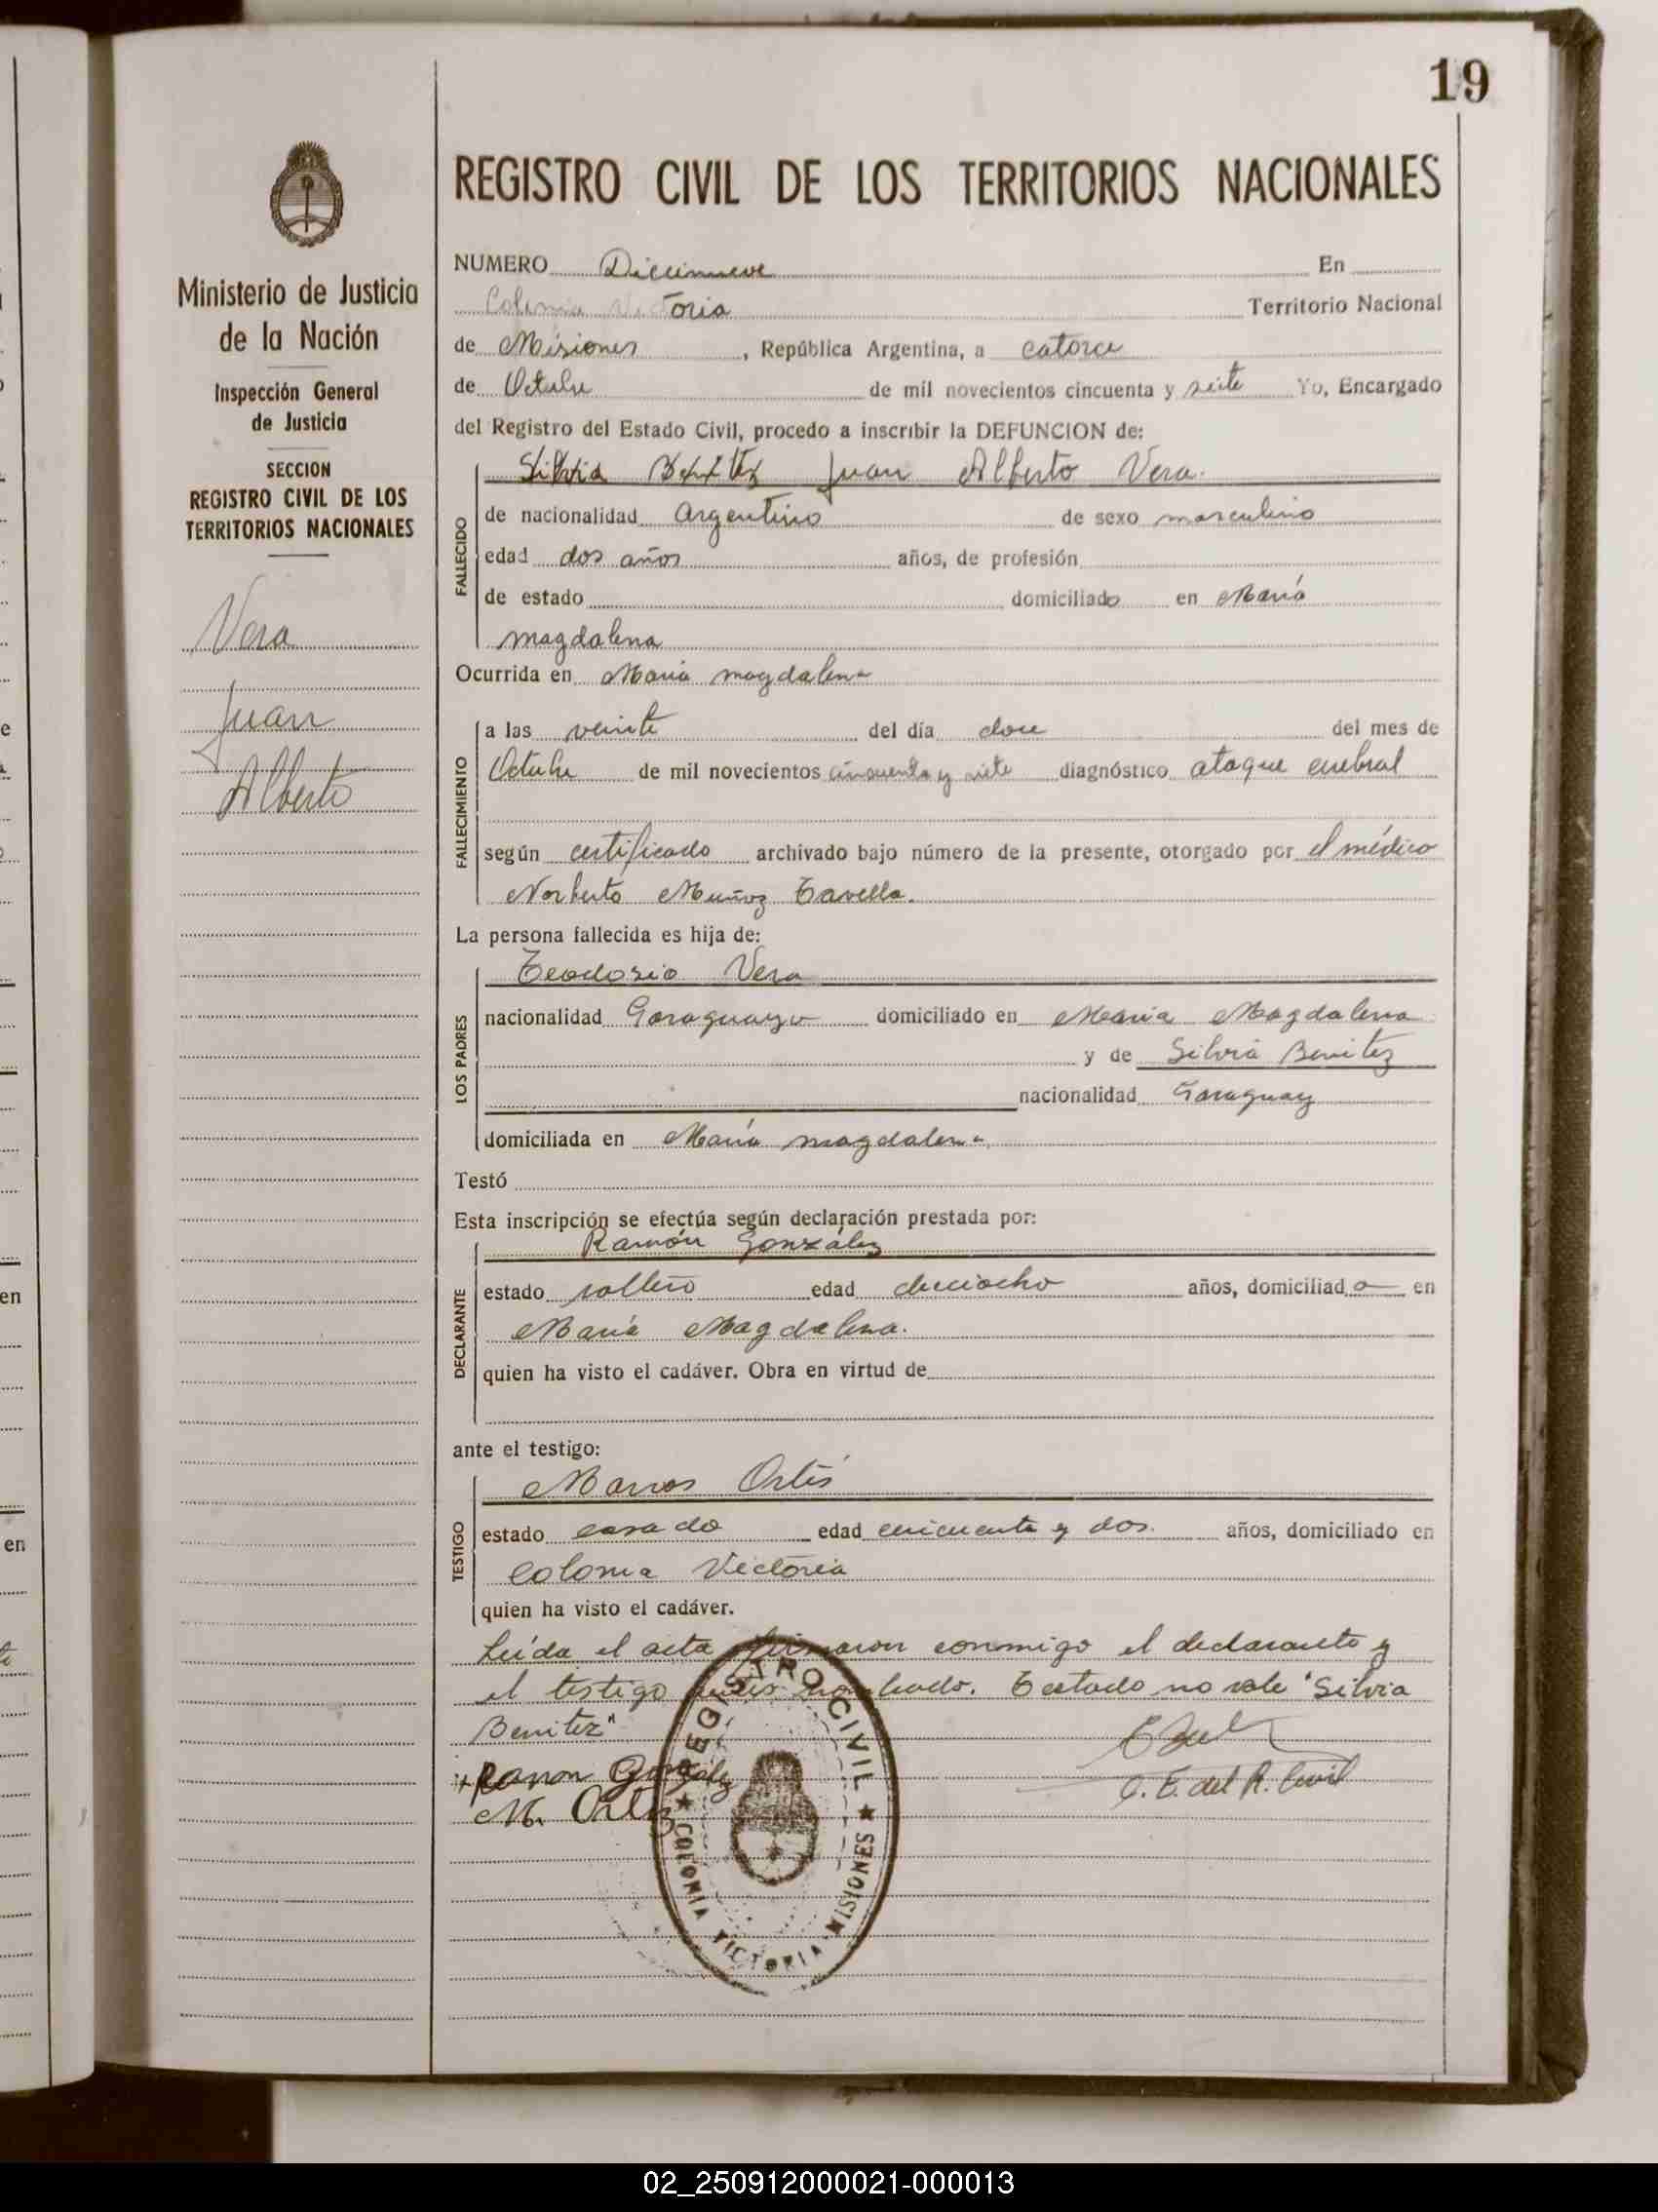 19
REGISTRO CIVIL DE LOS TERRITORIOS NACIONALES
Ministerio de Justicia
de la Nación
Inspección General
de Justicia
SECCION
REGISTRO CIVIL DE LOS
TERRITORIOS NACIONALES
Vera
Juan
Alberto
NUMERO Diecinueve En
Colonia Victoria Territorio Nacional
de Misiones, República Argentina, a catorce
de Octubre de mil novecientos cincuenta y siete Yo, Encargado
del Registro del Estado Civil, procedo a inscribir la DEFUNCION de:
Silvia Benitez Juan Alberto Vera.
FALLECIDO
de nacionalidad Argentino de sexo masculino
edad dos años años, de profesión
de estado domiciliado en María
magdalena
Ocurrida en María magdalena
FALLECIMIENTO
a las veinte del día doce del mes de
Octubre de mil novecientos cincuenta y siete diagnóstico ataque cerebral
según certificado archivado bajo número de la presente, otorgado por el médico
Norberto Muñoz Tavella.
La persona fallecida es hija de:
LOS PADRES
Teodosio Vera
nacionalidad Paraguayo domiciliado en María Magdalena
y de Silvia Benitez
nacionalidad Paraguay
domiciliada en María magdalena
Testó
Esta inscripción se efectúa según declaración prestada por:
DECLARANTE
Ramón González
estado soltero edad dieciocho años, domiciliado en
María Magdalena.
quien ha visto el cadáver. Obra en virtud de
ante el testigo:
TESTIGO
Marcos Ortís
estado casado edad cincuenta y dos. años, domiciliado en
Colonia Victoria
quien ha visto el cadáver.
Leída el acta firmaron conmigo el declarante y
el testigo antes nombrado. Testado no vale "Silvia
Benitez"
Ramon González
M. Ortiz
E. del R. Civil
REGISTRO CIVIL
★ COLONIA VICTORIA - MISIONES ★
02_250912000021-000013